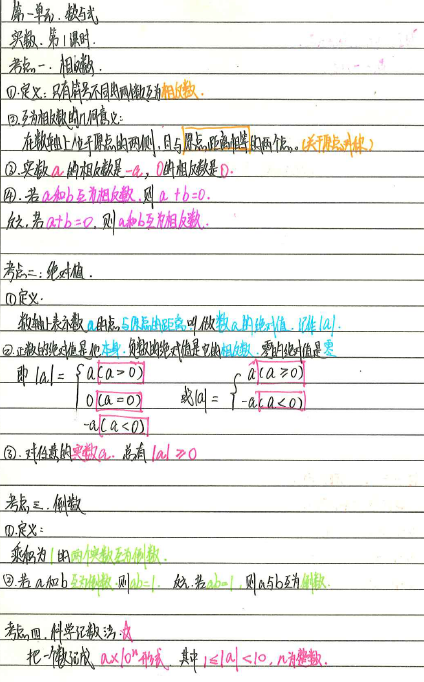 第一单元. 数与式
实数. 第1课时.
考点一. 相反数.
①.定义: 只有符号不同的两个数互为相反数.
②.互为相反数的几何意义:
在数轴上位于原点的两侧, 且与原点距离相等的两个点. (关于原点对称)
③.实数a的相反数是-a, 0的相反数是0.
④.若a和b互为相反数, 则 a+b=0.
反之, 若a+b=0, 则a和b互为相反数.
考点二: 绝对值.
①定义.
数轴上表示数a的点与原点的距离叫做数a的绝对值. 记作|a|.
②.正数的绝对值是他本身. 负数的绝对值是它的相反数. 零的绝对值是零
即 |a| = { a (a>0) 或|a| = { a (a≥0)
0 (a=0) -a (a<0)
-a (a<0)
③. 对任意的实数a. 总有 |a| ≥0
考点三. 倒数
①.定义:
乘积为1的两个实数互为倒数.
②若a和b互为倒数. 则ab=1. 反之. 若ab=1, 则a与b互为倒数.
考点四. 科学记数法:☆
把一个数记成 a×10ⁿ形式. 其中 1≤|a|<10, n为整数.